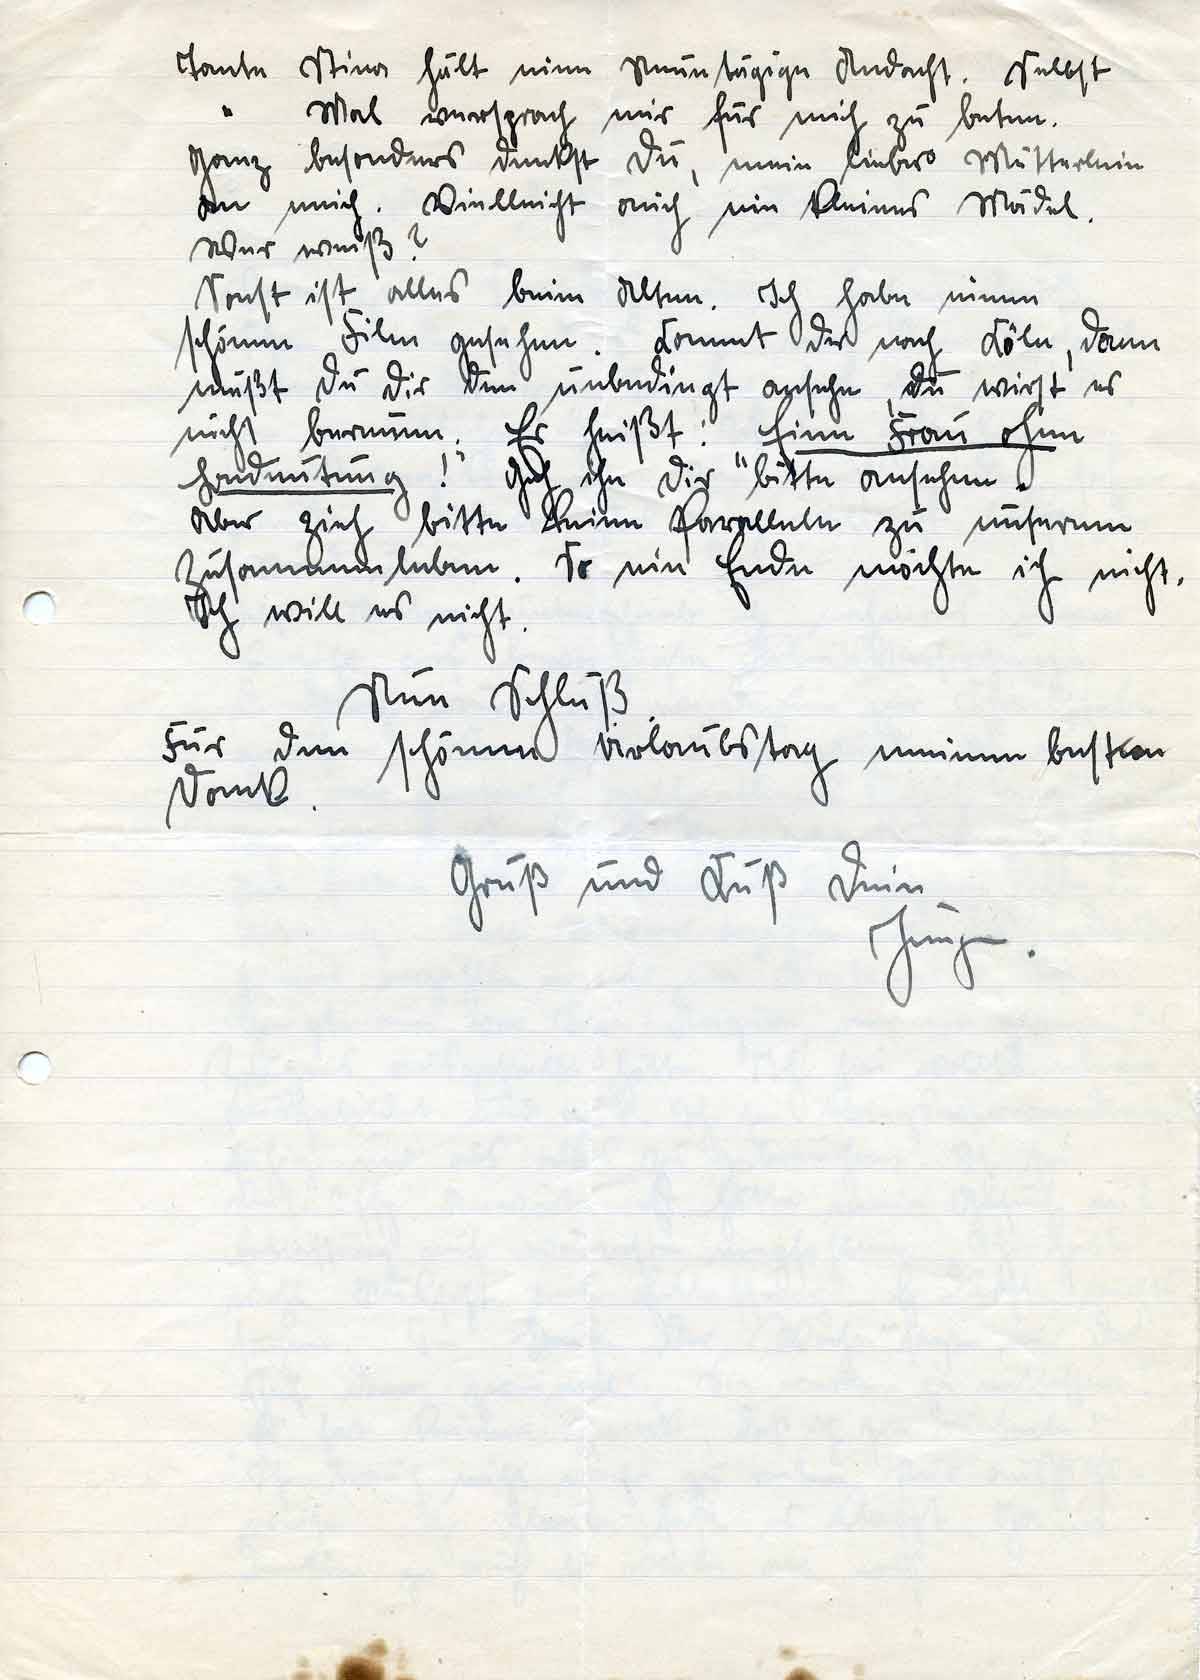 Tante Stina hält eine Neuntägige Andacht. Selbst
" Mal versprach mir für mich zu beten.
Ganz besonders denkst Du, mein liebes Mütterlein
an mich. Vielleicht auch ein kleines Mädel.
Wer weiß?
Sonst ist alles beim Alten. Ich habe einen
schönen Film gesehen. Kommt der nach Köln, dann
mußt Du Dir den unbedingt ansehn, du wirst es
nicht bereuen. Er heißt: Eine Frau ohne
Bedeutung!" Geh ihn Dir "bitte ansehen.
Aber zieh bitte keine Parallele zu unserem
Zusammenleben. So ein Ende möchte ich nicht.
Ich will es nicht.
Nun Schluß.
Für den schönen Urlaubstag meinen besten
Dank.
Gruß und Kuß Dein